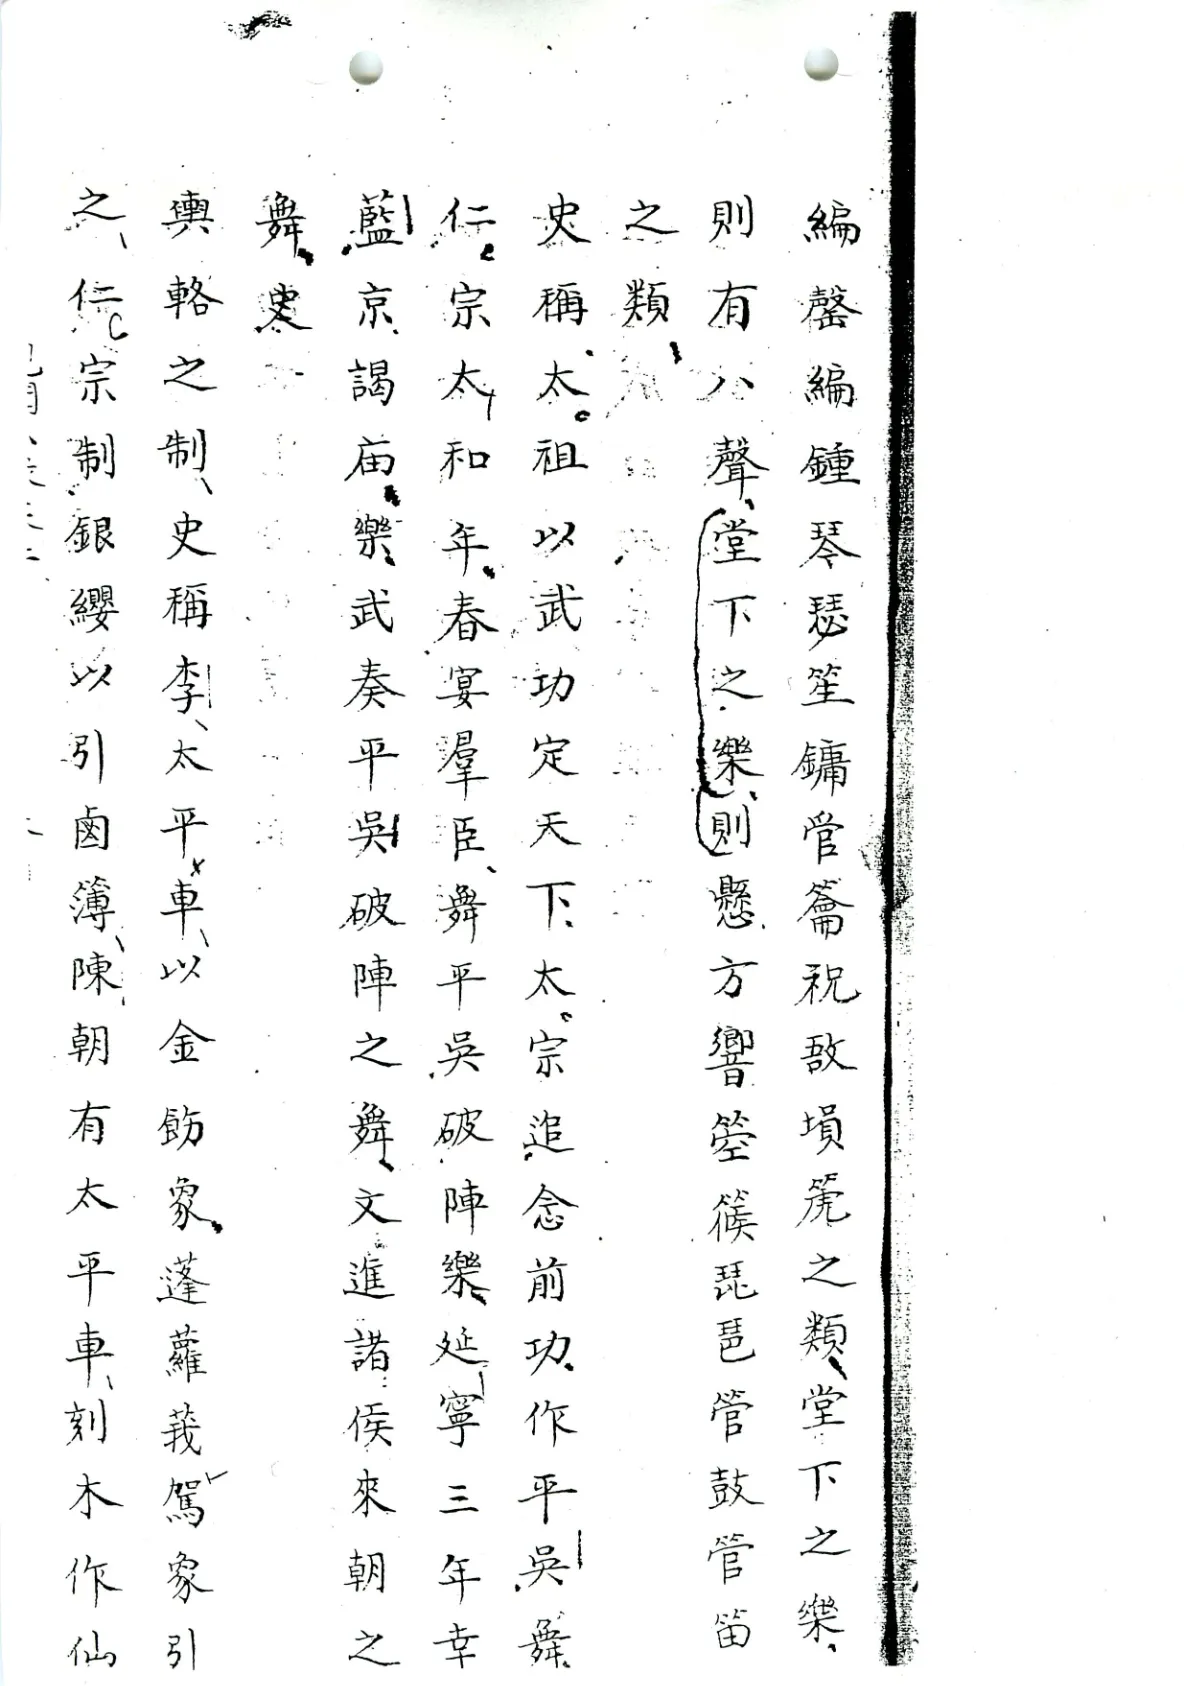 編罄編鍾琴瑟笙鏞管籥祝敔塤篪之類堂下之樂
則有八聲堂下之樂則懸方響箜篌琵琶管鼓管笛
之類
史稱太祖以武功定天下太宗追念前功作平吳舞
仁宗太和年春宴羣臣舞平吳破陣樂延寧三年幸
藍京謁庙樂武奏平吳破陣之舞文進諸侯來朝之
舞史
輿輅之制史稱李太平車以金飭象蓬蘿莪駕象引
之仁宗制銀纓以引鹵簿陳朝有太平車刻木作仙